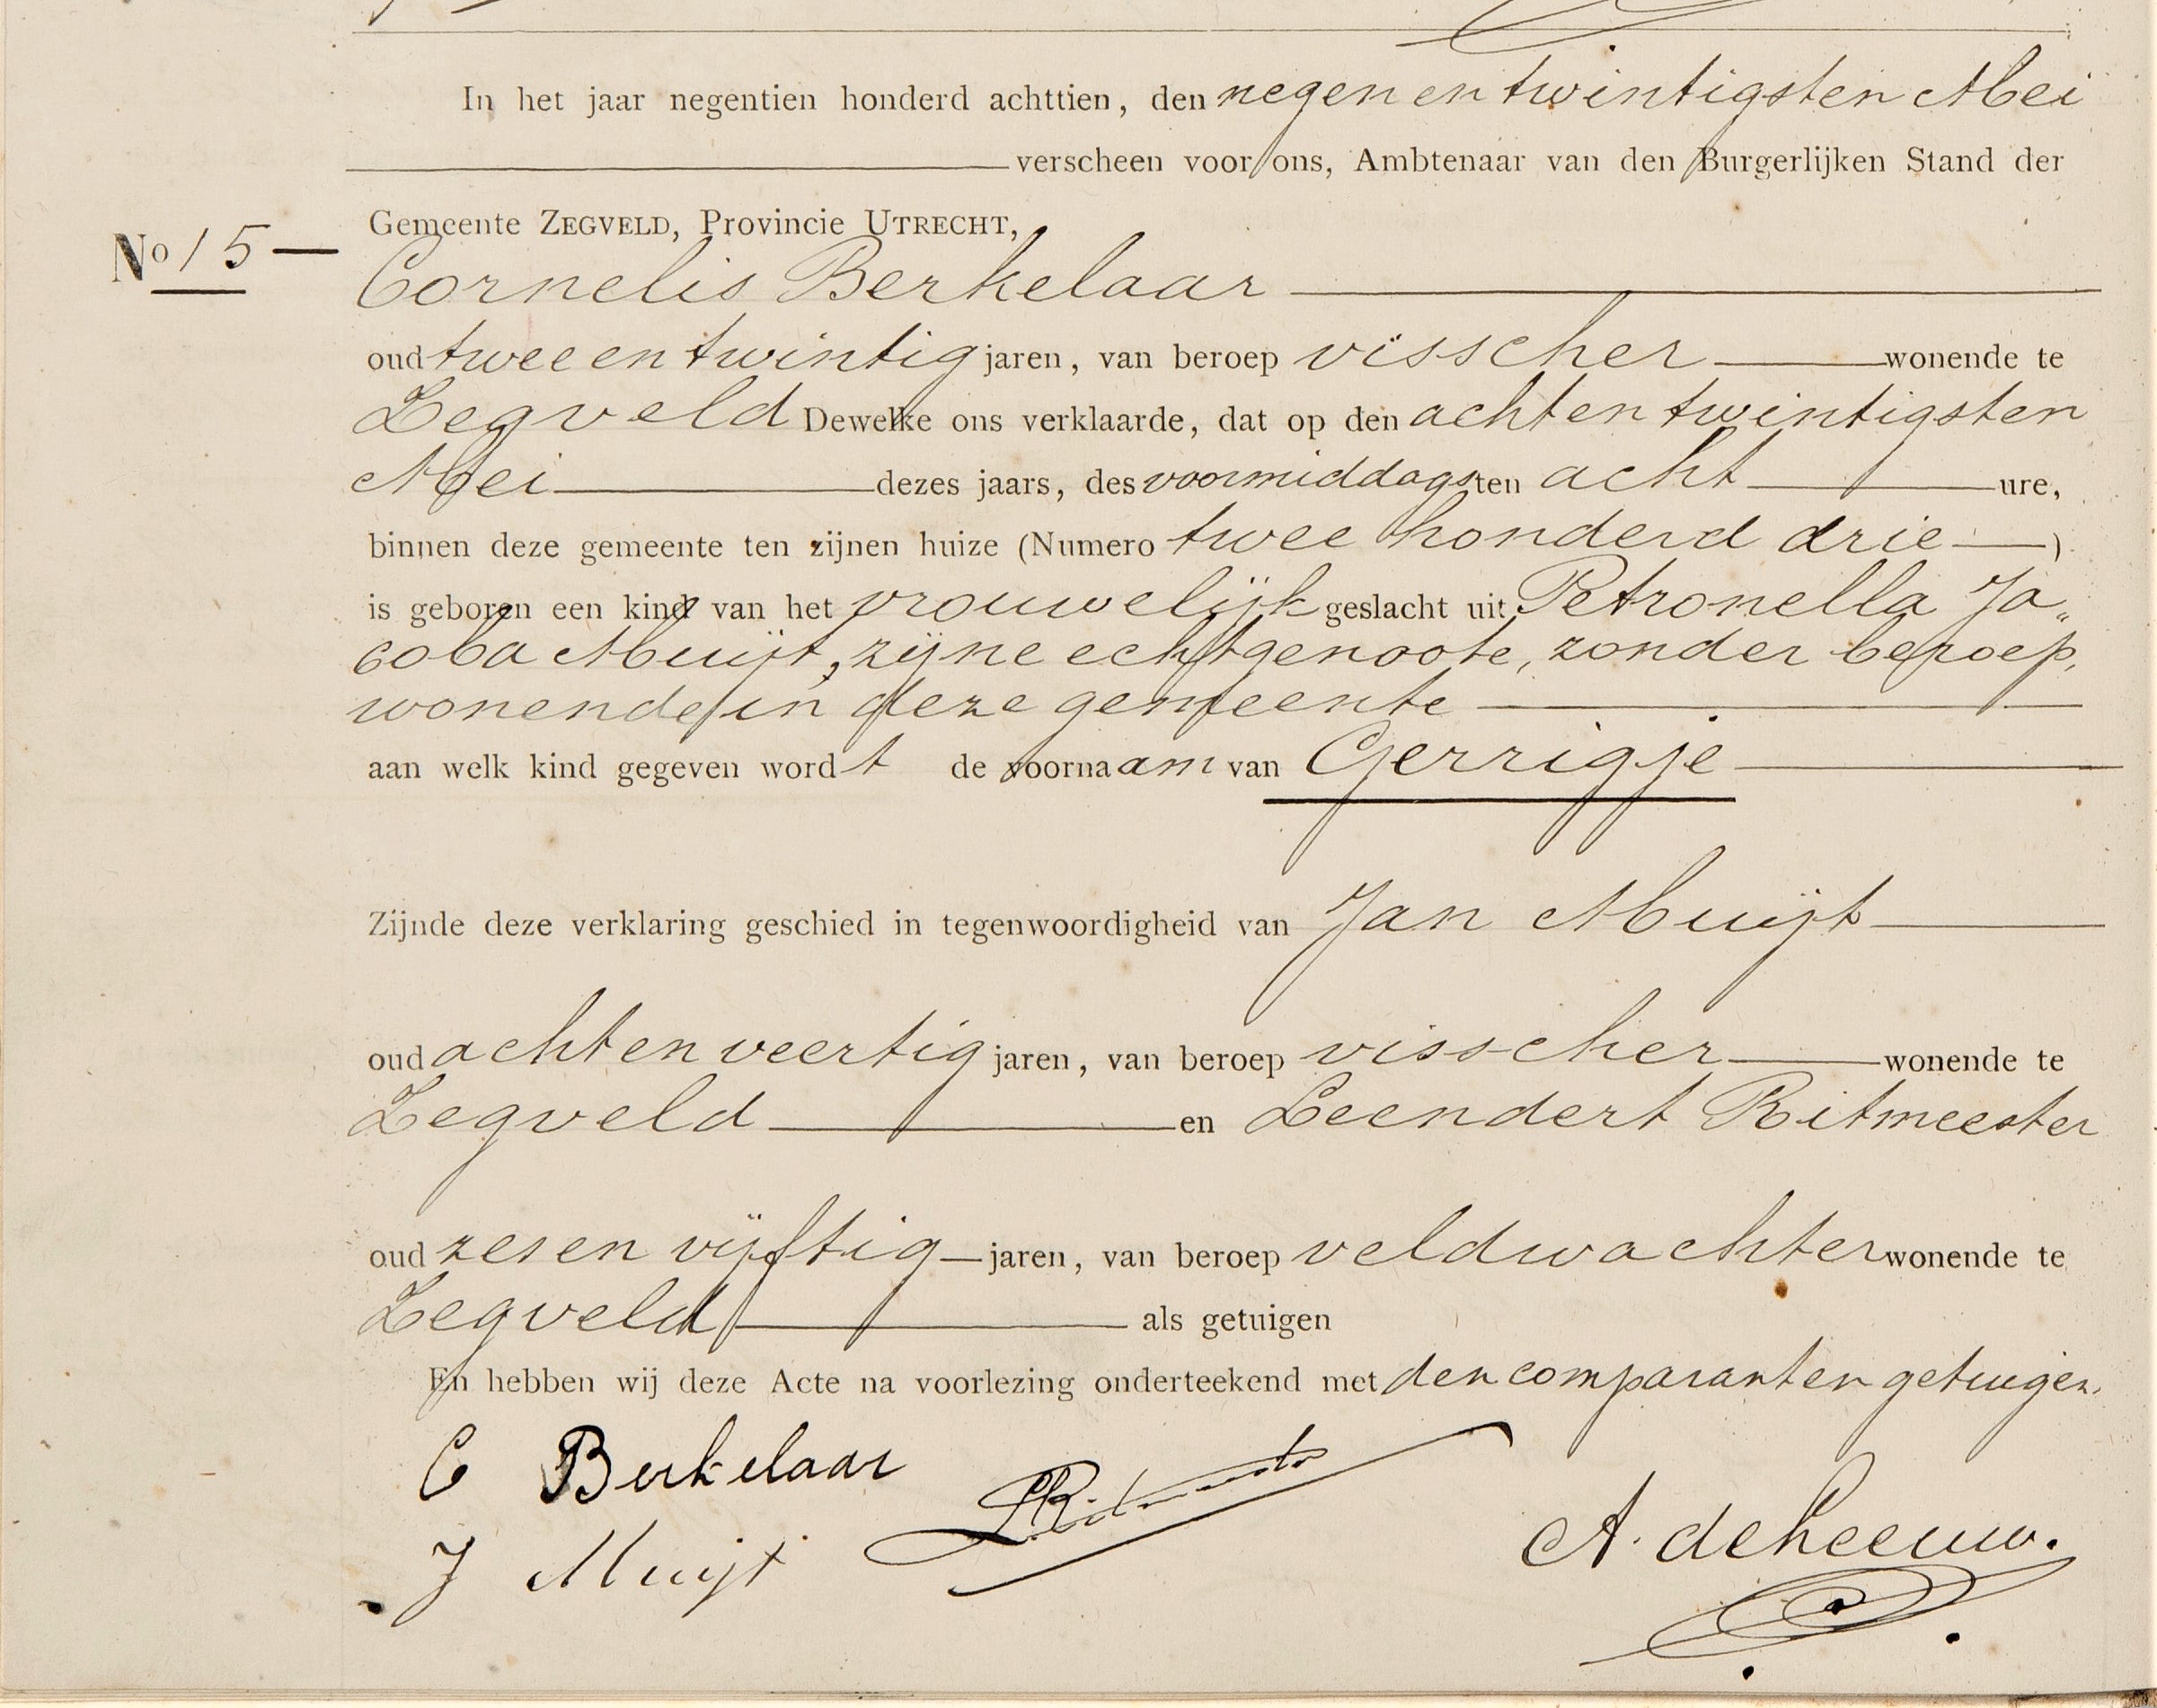 In het jaar negentien honderd achttien, den negen en twintigsten Mei
verscheen voor ons, Ambtenaar van den Burgerlijken Stand der
Gemeente ZEGVELD, Provincie UTRECHT,
No 15
Cornelis Berkelaar
oud twee en twintig jaren, van beroep visscher wonende te
Zegveld Dewelke ons verklaarde, dat op den achten twintigsten
Mei dezes jaars, des voormiddags ten acht ure,
binnen deze gemeente ten zijnen huize (Numero twee honderd drie )
is geboren een kind van het vrouwelijk geslacht uit Petronella Ja„
coba Muijt, zijne echtgenoote, zonder beroep,
wonende in deze gemeente
aan welk kind gegeven wordt de voornaam van Gerrigje
Zijnde deze verklaring geschied in tegenwoordigheid van Jan Muijt
oud achten veertig jaren, van beroep visscher wonende te
Zegveld en Leendert Ritmeester
oud zesen vijftig jaren, van beroep veldwachter wonende te
Zegveld als getuigen
En hebben wij deze Acte na voorlezing onderteekend met den comparant en getuigen.
C Berkelaar
LRitmeester
J Muijt
A. de Leeuw.